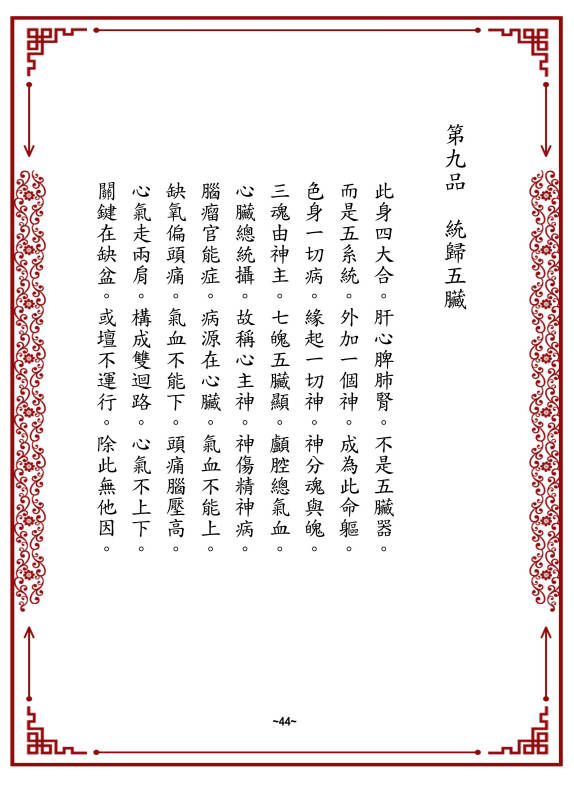 第九品　統歸五臟
此身四大合。肝心脾肺腎。不是五臟器。
而是五系統。外加一個神。成為此命軀。
色身一切病。緣起一切神。神分魂與魄。
三魂由神主。七魄五臟顯。顱腔總氣血。
心臟總統攝。故稱心主神。神傷精神病。
腦瘤官能症。病源在心臟。氣血不能上。
缺氧偏頭痛。氣血不能下。頭痛腦壓高。
心氣走兩肩。構成雙迴路。心氣不上下。
關鍵在缺盆。或壇不運行。除此無他因。
~44~